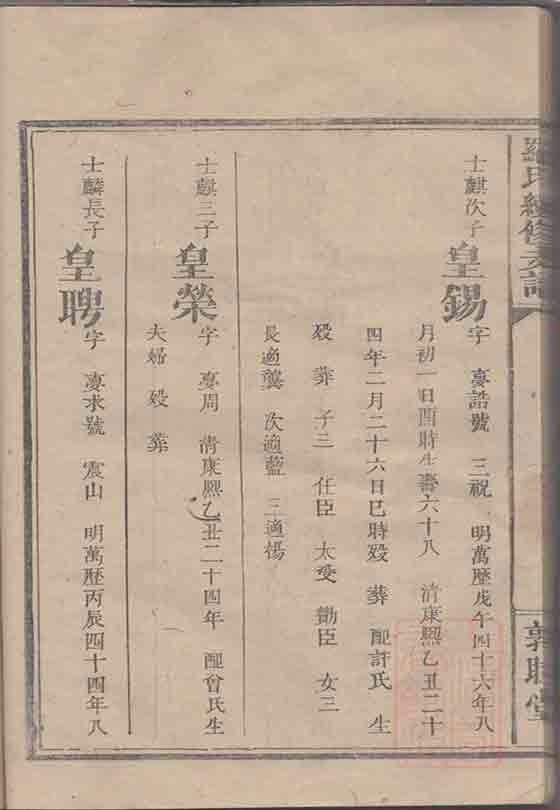 羅氏續修支譜
敦睦堂
士麒次子
皇錫
字 夢誥號 三祝 明萬歷戊午四十六年八
月初一日酉時生壽六十八 清康熙乙丑二十
四年二月二十六日巳時歿 葬 配許氏 生
歿 葬 子三 任臣 太受 勸臣 女三
長適龔 次適藍 三適楊
士麒三子
皇榮
字 夢周 清康熙乙丑二十四年 配曾氏生
夫婦 歿 葬
士麟長子
皇聘
字 夢求號 震山 明萬歷丙辰四十四年八